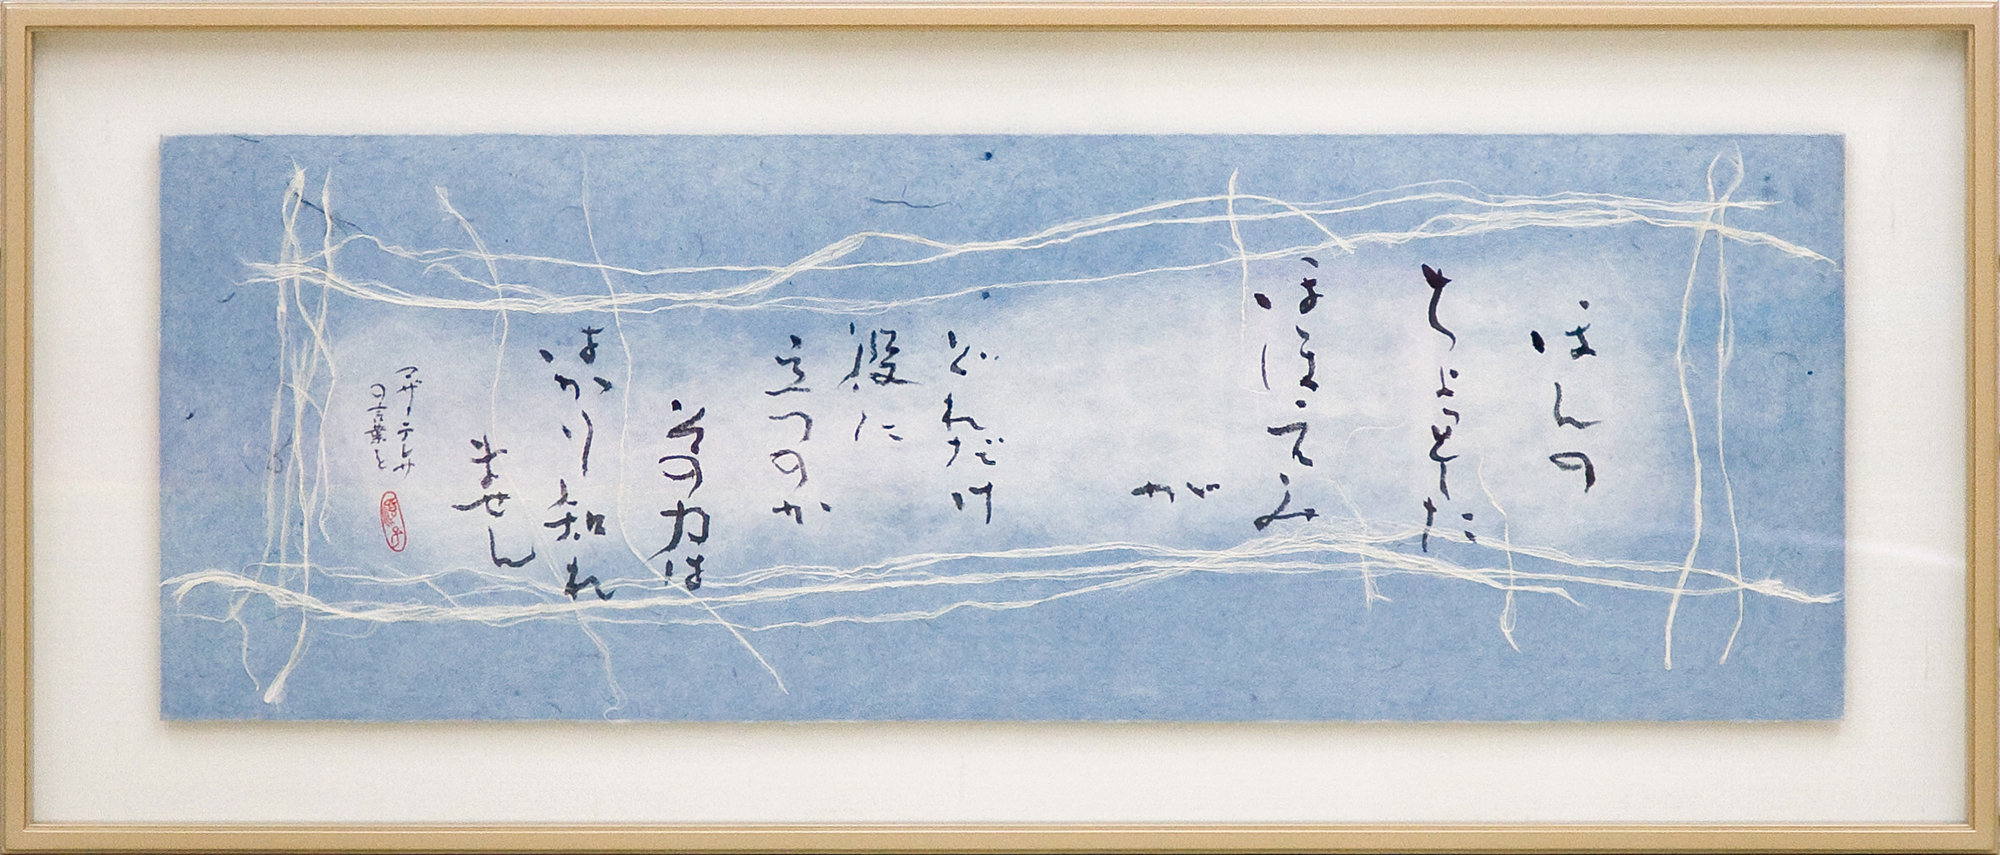 ほんの
ちょっとした
ほほえみ
が
どれだけ
役に
立つのか
その力は
はかり知れ
ません
マザーテレサ
の言葉を